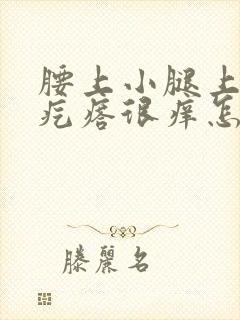 腰上小腿上
疙瘩很痒怎
滕麗名